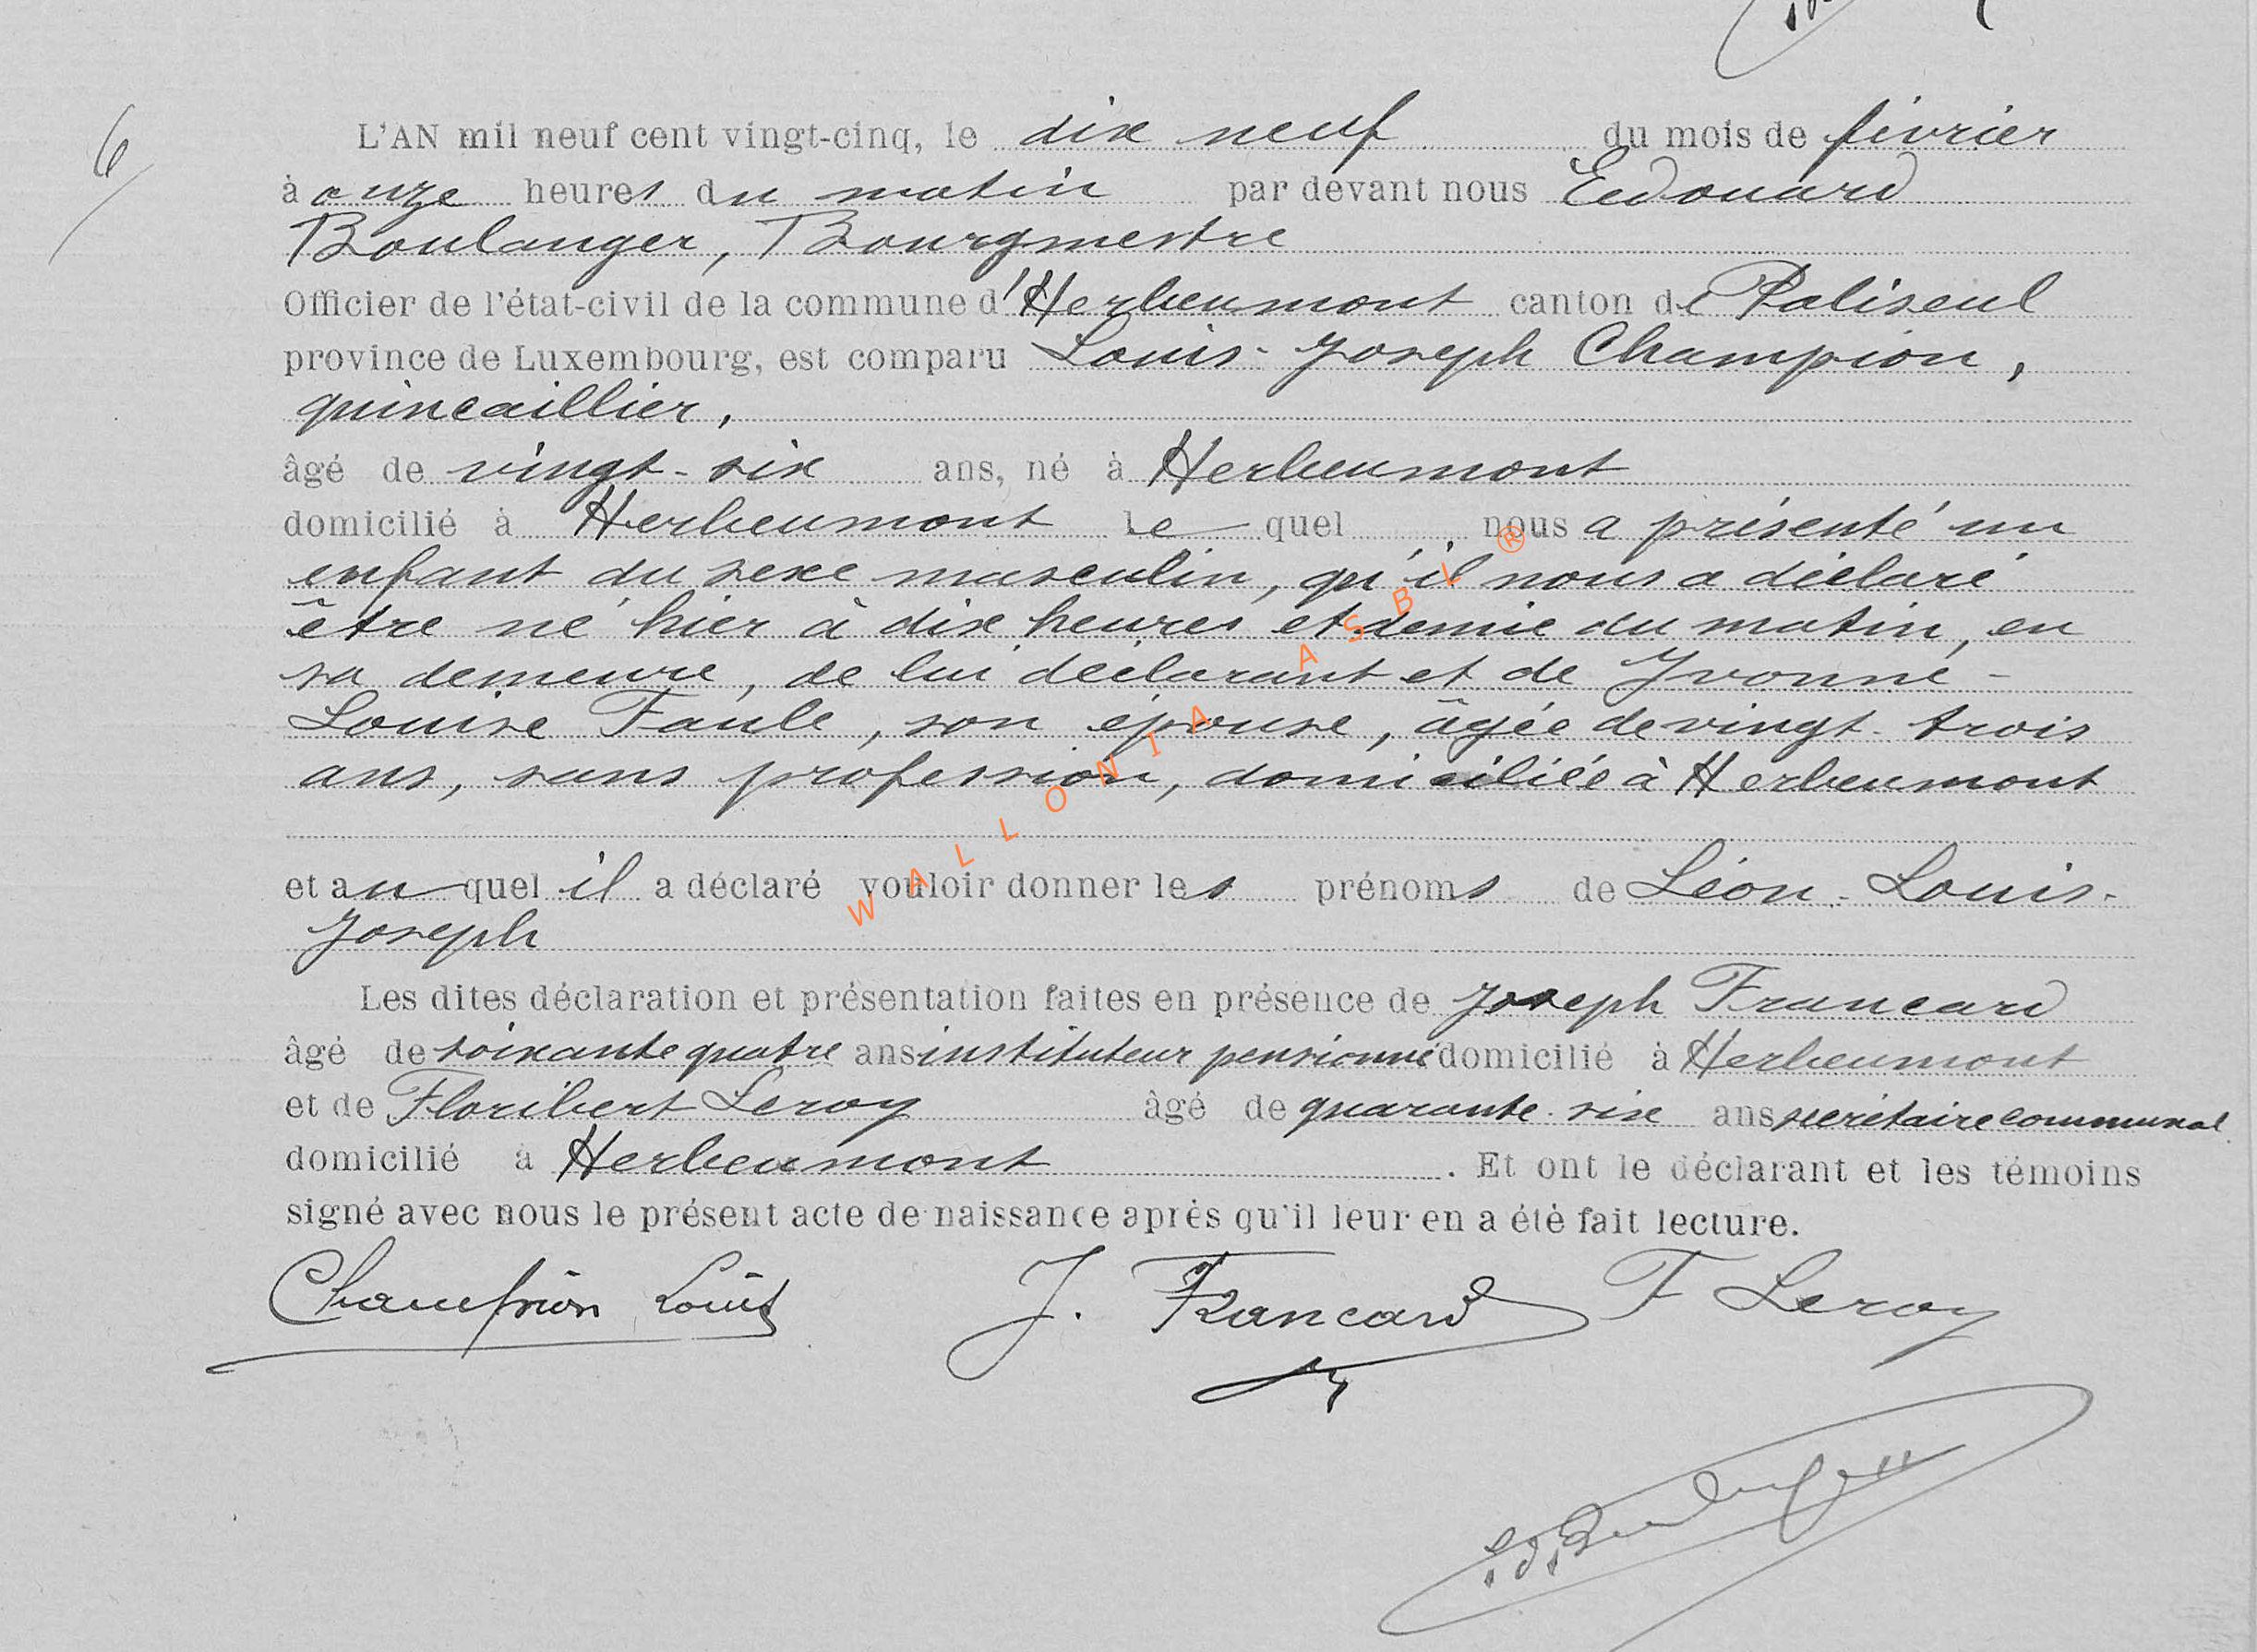 6
L'AN mil neuf cent vingt-cinq, le dix neuf du mois de février
à onze heures du matin par devant nous Edouard
Boulanger, Bourgmestre
Officier de l'état-civil de la commune d'Herbeumont canton de Paliseul
province de Luxembourg, est comparu Louis-Joseph Champion,
quincaillier,
âgé de vingt-six ans, né à Herbeumont
domicilié à Herbeumont le quel nous a présenté un
enfant du sexe masculin, qu'il nous a déclaré
être né hier à dix heures et demie du matin, en
sa demeure, de lui déclarant et de Yvonne-
Louise Faule, son épouse, âgée de vingt-trois
ans, sans profession, domiciliée à Herbeumont
et au quel il a déclaré vouloir donner les prénoms de Léon-Louis-
Joseph
Les dites déclaration et présentation faites en présence de Joseph Francard
âgé de soixante quatre ans instituteur pensionné domicilié à Herbeumont
et de Floribert Leroy âgé de quarante-six ans secrétaire communal
domicilié à Herbeumont. Et ont le déclarant et les témoins
signé avec nous le présent acte de naissance après qu'il leur en a été fait lecture.
Champion Louis J. Francard F Leroy
WALLONIA ASBL ®